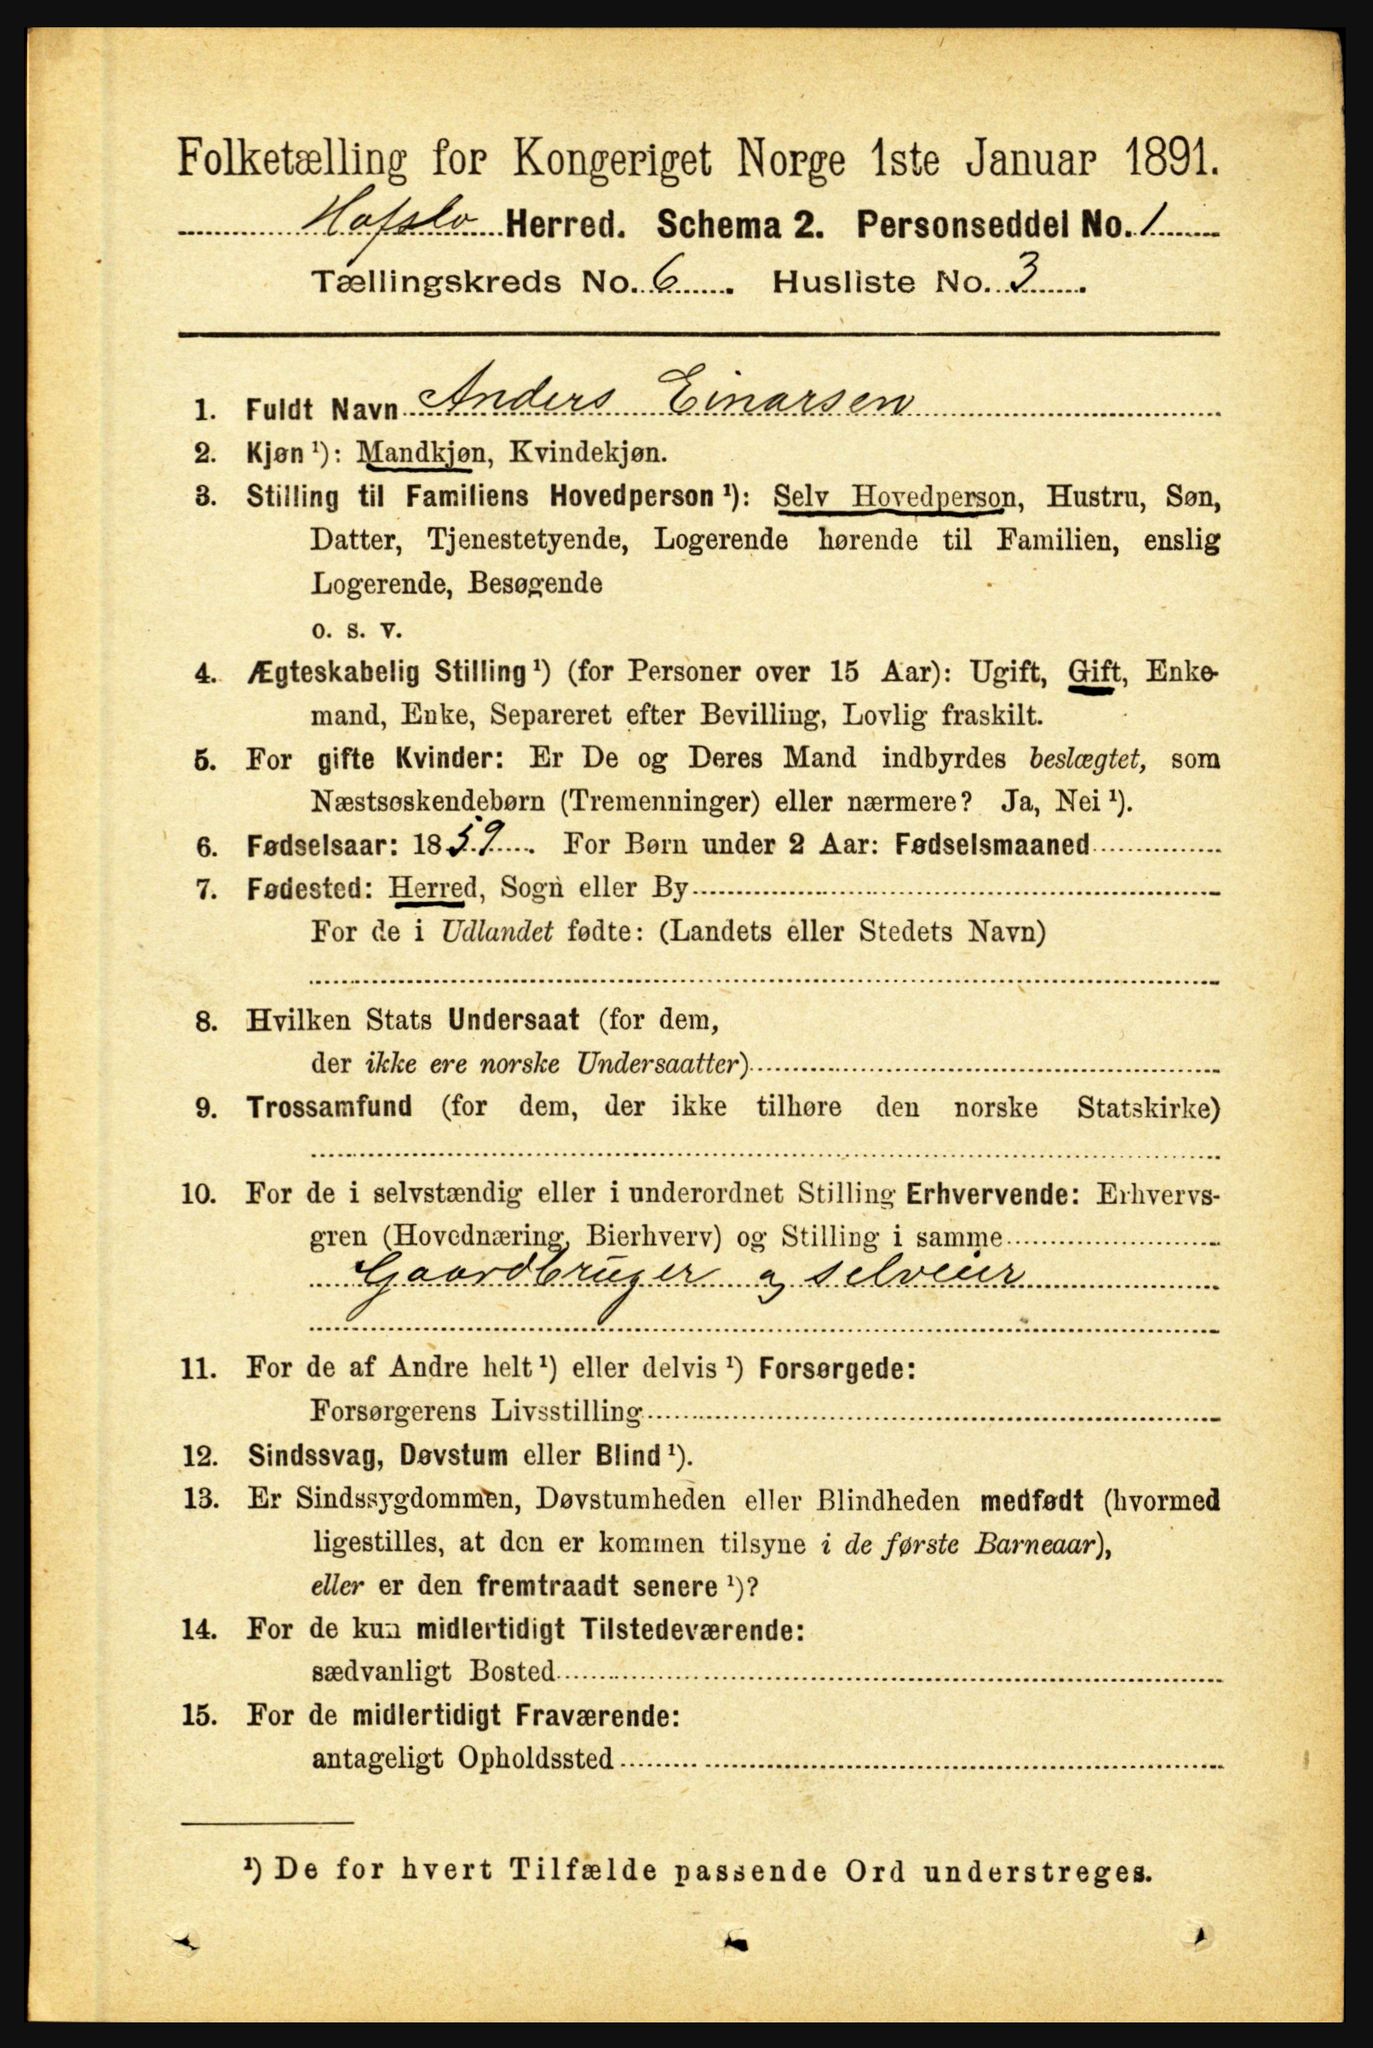 Folketælling for Kongeriget Norge 1ste Januar 1891.
Hafslo Herred. Schema 2. Personseddel No. 1
Tællingskreds No. 6. Husliste No. 3.
1. Fuldt Navn Anders Einarsen
2. Kjøn ¹): Mandkjøn, Kvindekjøn.
3. Stilling til Familiens Hovedperson ¹): Selv Hovedperson, Hustru, Søn,
Datter, Tjenestetyende, Logerende hørende til Familien, enslig
Logerende, Besøgende
o. s. v.
4. Ægteskabelig Stilling ¹) (for Personer over 15 Aar): Ugift, Gift, Enke-
mand, Enke, Separeret efter Bevilling, Lovlig fraskilt.
5. For gifte Kvinder: Er De og Deres Mand indbyrdes beslægtet, som
Næstsøskendebørn (Tremenninger) eller nærmere? Ja, Nei ¹).
6. Fødselsaar: 1859. For Børn under 2 Aar: Fødselsmaaned
7. Fødested: Herred, Sogn eller By
For de i Udlandet fødte: (Landets eller Stedets Navn)
8. Hvilken Stats Undersaat (for dem,
der ikke ere norske Undersaatter)
9. Trossamfund (for dem, der ikke tilhøre den norske Statskirke)
10. For de i selvstændig eller i underordnet Stilling Erhvervende: Erhvervs-
gren (Hovednæring, Bierhverv) og Stilling i samme
Gaardbruger og selveier
11. For de af Andre helt ¹) eller delvis ¹) Forsørgede:
Forsørgerens Livsstilling
12. Sindssvag, Døvstum eller Blind ¹).
13. Er Sindssygdommen, Døvstumheden eller Blindheden medfødt (hvormed
ligestilles, at den er kommen tilsyne i de første Barneaar),
eller er den fremtraadt senere ¹)?
14. For de kun midlertidigt Tilstedeværende:
sædvanligt Bosted
15. For de midlertidigt Fraværende:
antageligt Opholdssted
¹) De for hvert Tilfælde passende Ord understreges.